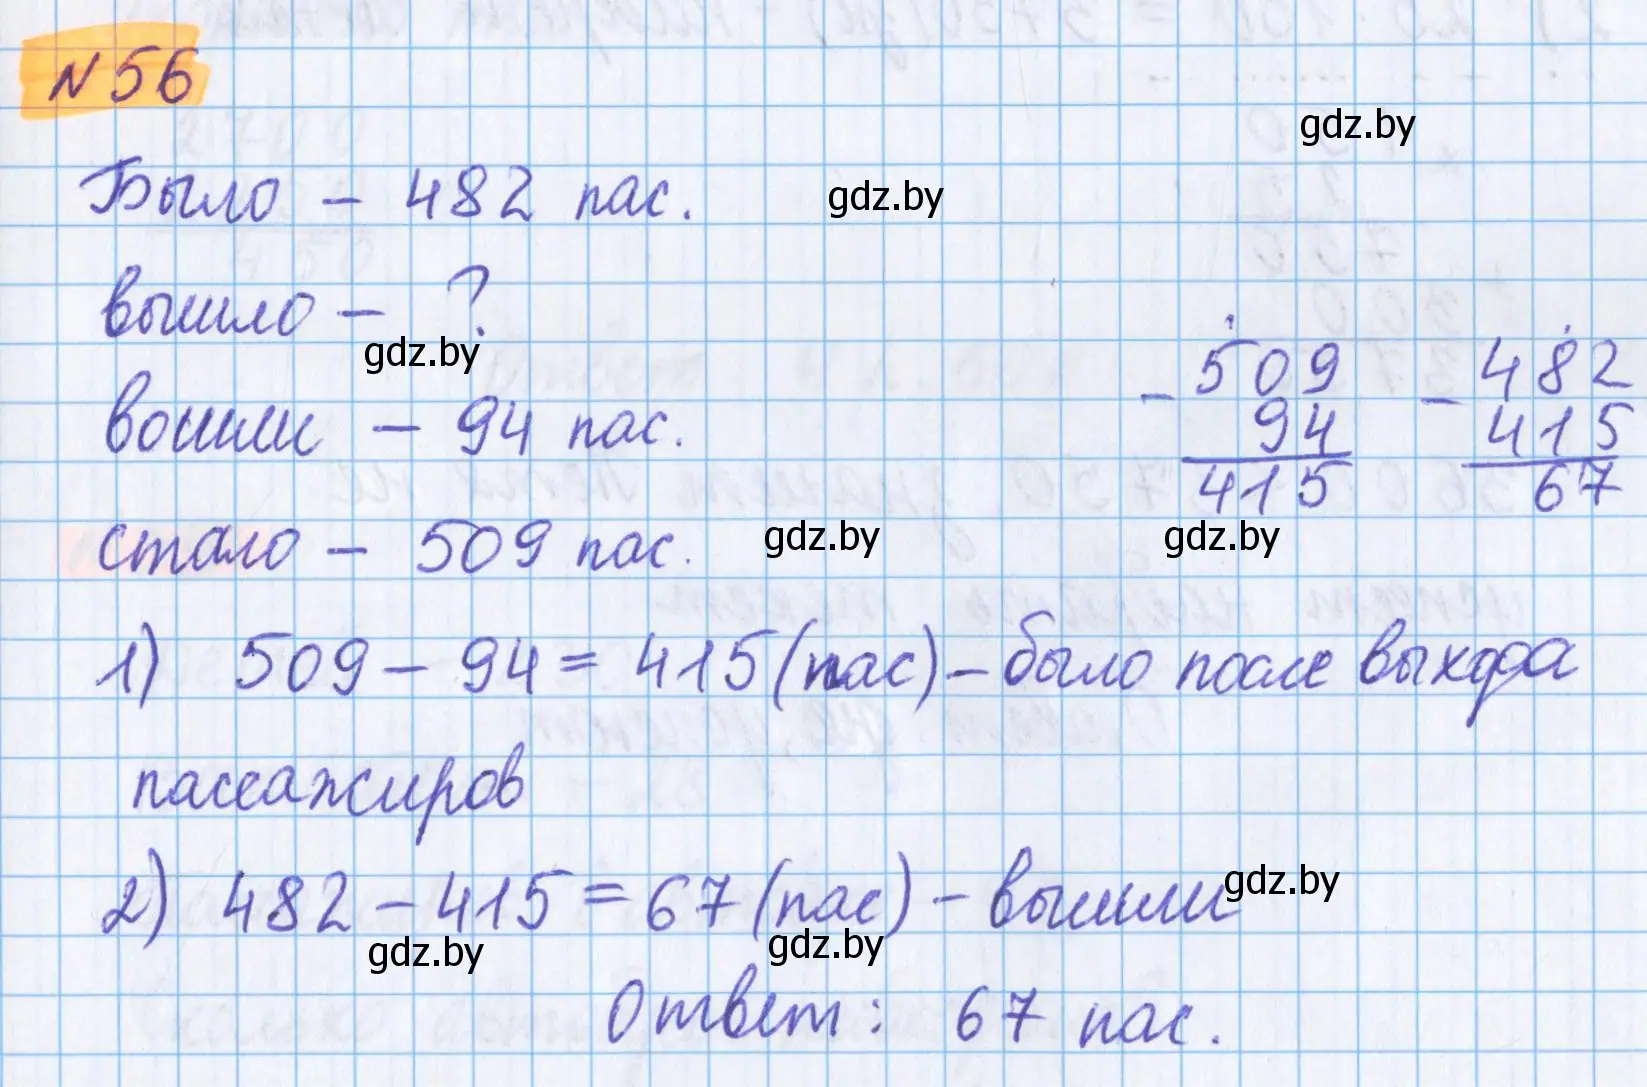 N 56
Было – 482 пас.
вышло – ?
вошли – 94 пас.
стало – 509 пас.
– 509
94
415
– 482
415
67
1) 509 – 94 = 415 (пас) – было после выхода
пассажиров
2) 482 – 415 = 67 (пас) – вышли
Ответ: 67 пас.
gdz.by
gdz.by
gdz.by
gdz.by
gdz.by
gdz.by
gdz.by
gdz.by